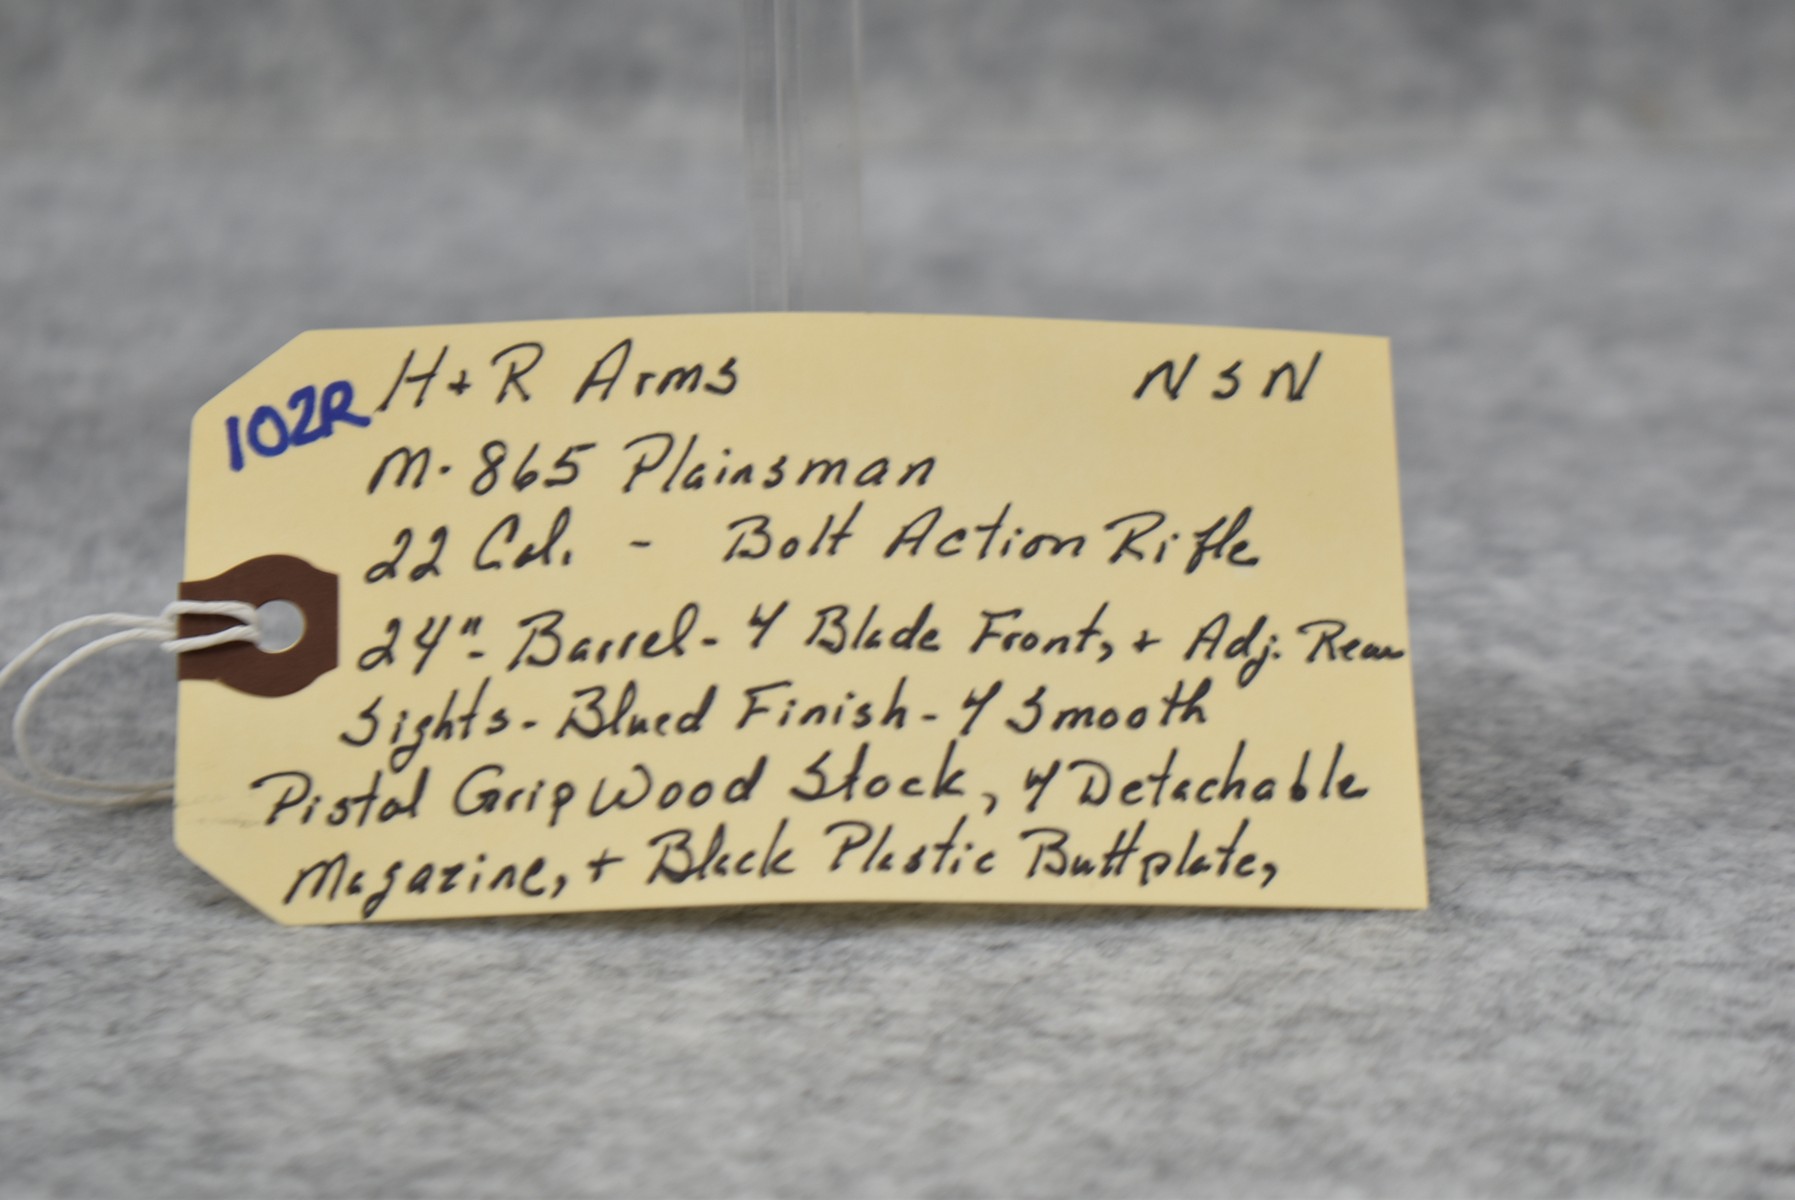 102R H+R Arms NSN
M-865 Plainsman
22 Cal. - Bolt Action Rifle
24"- Barrel- Y Blade Front, + Adj. Rear
Sights- Blued Finish- Y Smooth
Pistol Grip Wood Stock, Y Detachable
Magazine, + Black Plastic Buttplate,